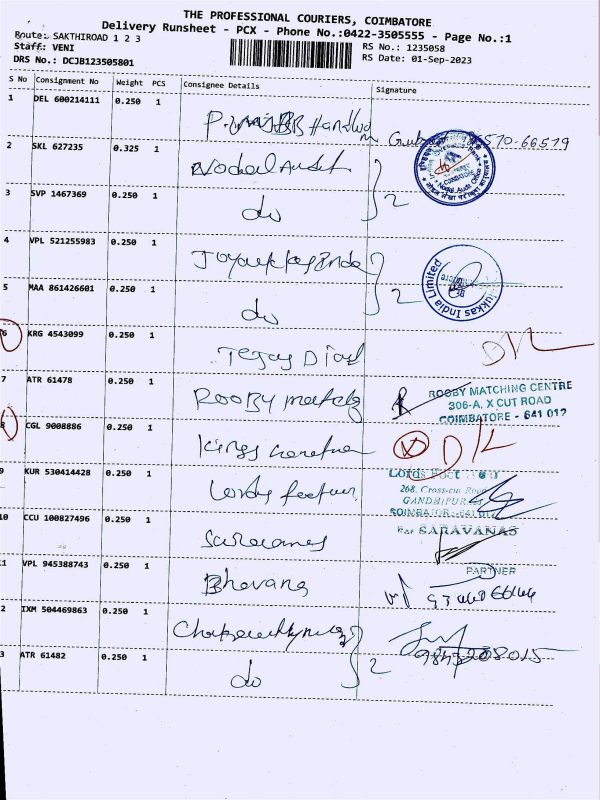 THE PROFESSIONAL COURIERS, COIMBATORE
Delivery Runsheet - PCX - Phone No.:0422-3505555 - Page No.:1
Route: SAKTHIROAD 1 2 3
Staff: VENI
DRS No.: DCJB123505801
RS No.: 1235058
RS Date: 01-Sep-2023
S No Consignment No Weight PCS Consignee Details Signature
1 DEL 600214111 0.250 1
2 SKL 627235 0.325 1 Nodal Audit 2
Nodal Audit Office
3 SVP 1467369 0.250 1 do
4 VPL 521255983 0.250 1 2
lukkas India Limited
5 MAA 861426601 0.250 1 do
6 KRG 4543099 0.250 1 D/L
7 ATR 61478 0.250 1 ROOBY
ROOBY MATCHING CENTRE
306-A, X CUT ROAD
COIMBATORE - 641 012
8 CGL 9008886 0.250 1 Kings D/L
9 KUR 530414428 0.250 1 Lords
268, Cross-cut Road
GANDHIPURAM
10 CCU 100827496 0.250 1 Saravanas
For SARAVANAS
PARTNER
1 VPL 945388743 0.250 1 Bhavana
2 IXM 504469863 0.250 1
9843208015
3 ATR 61482 0.250 1 do 2